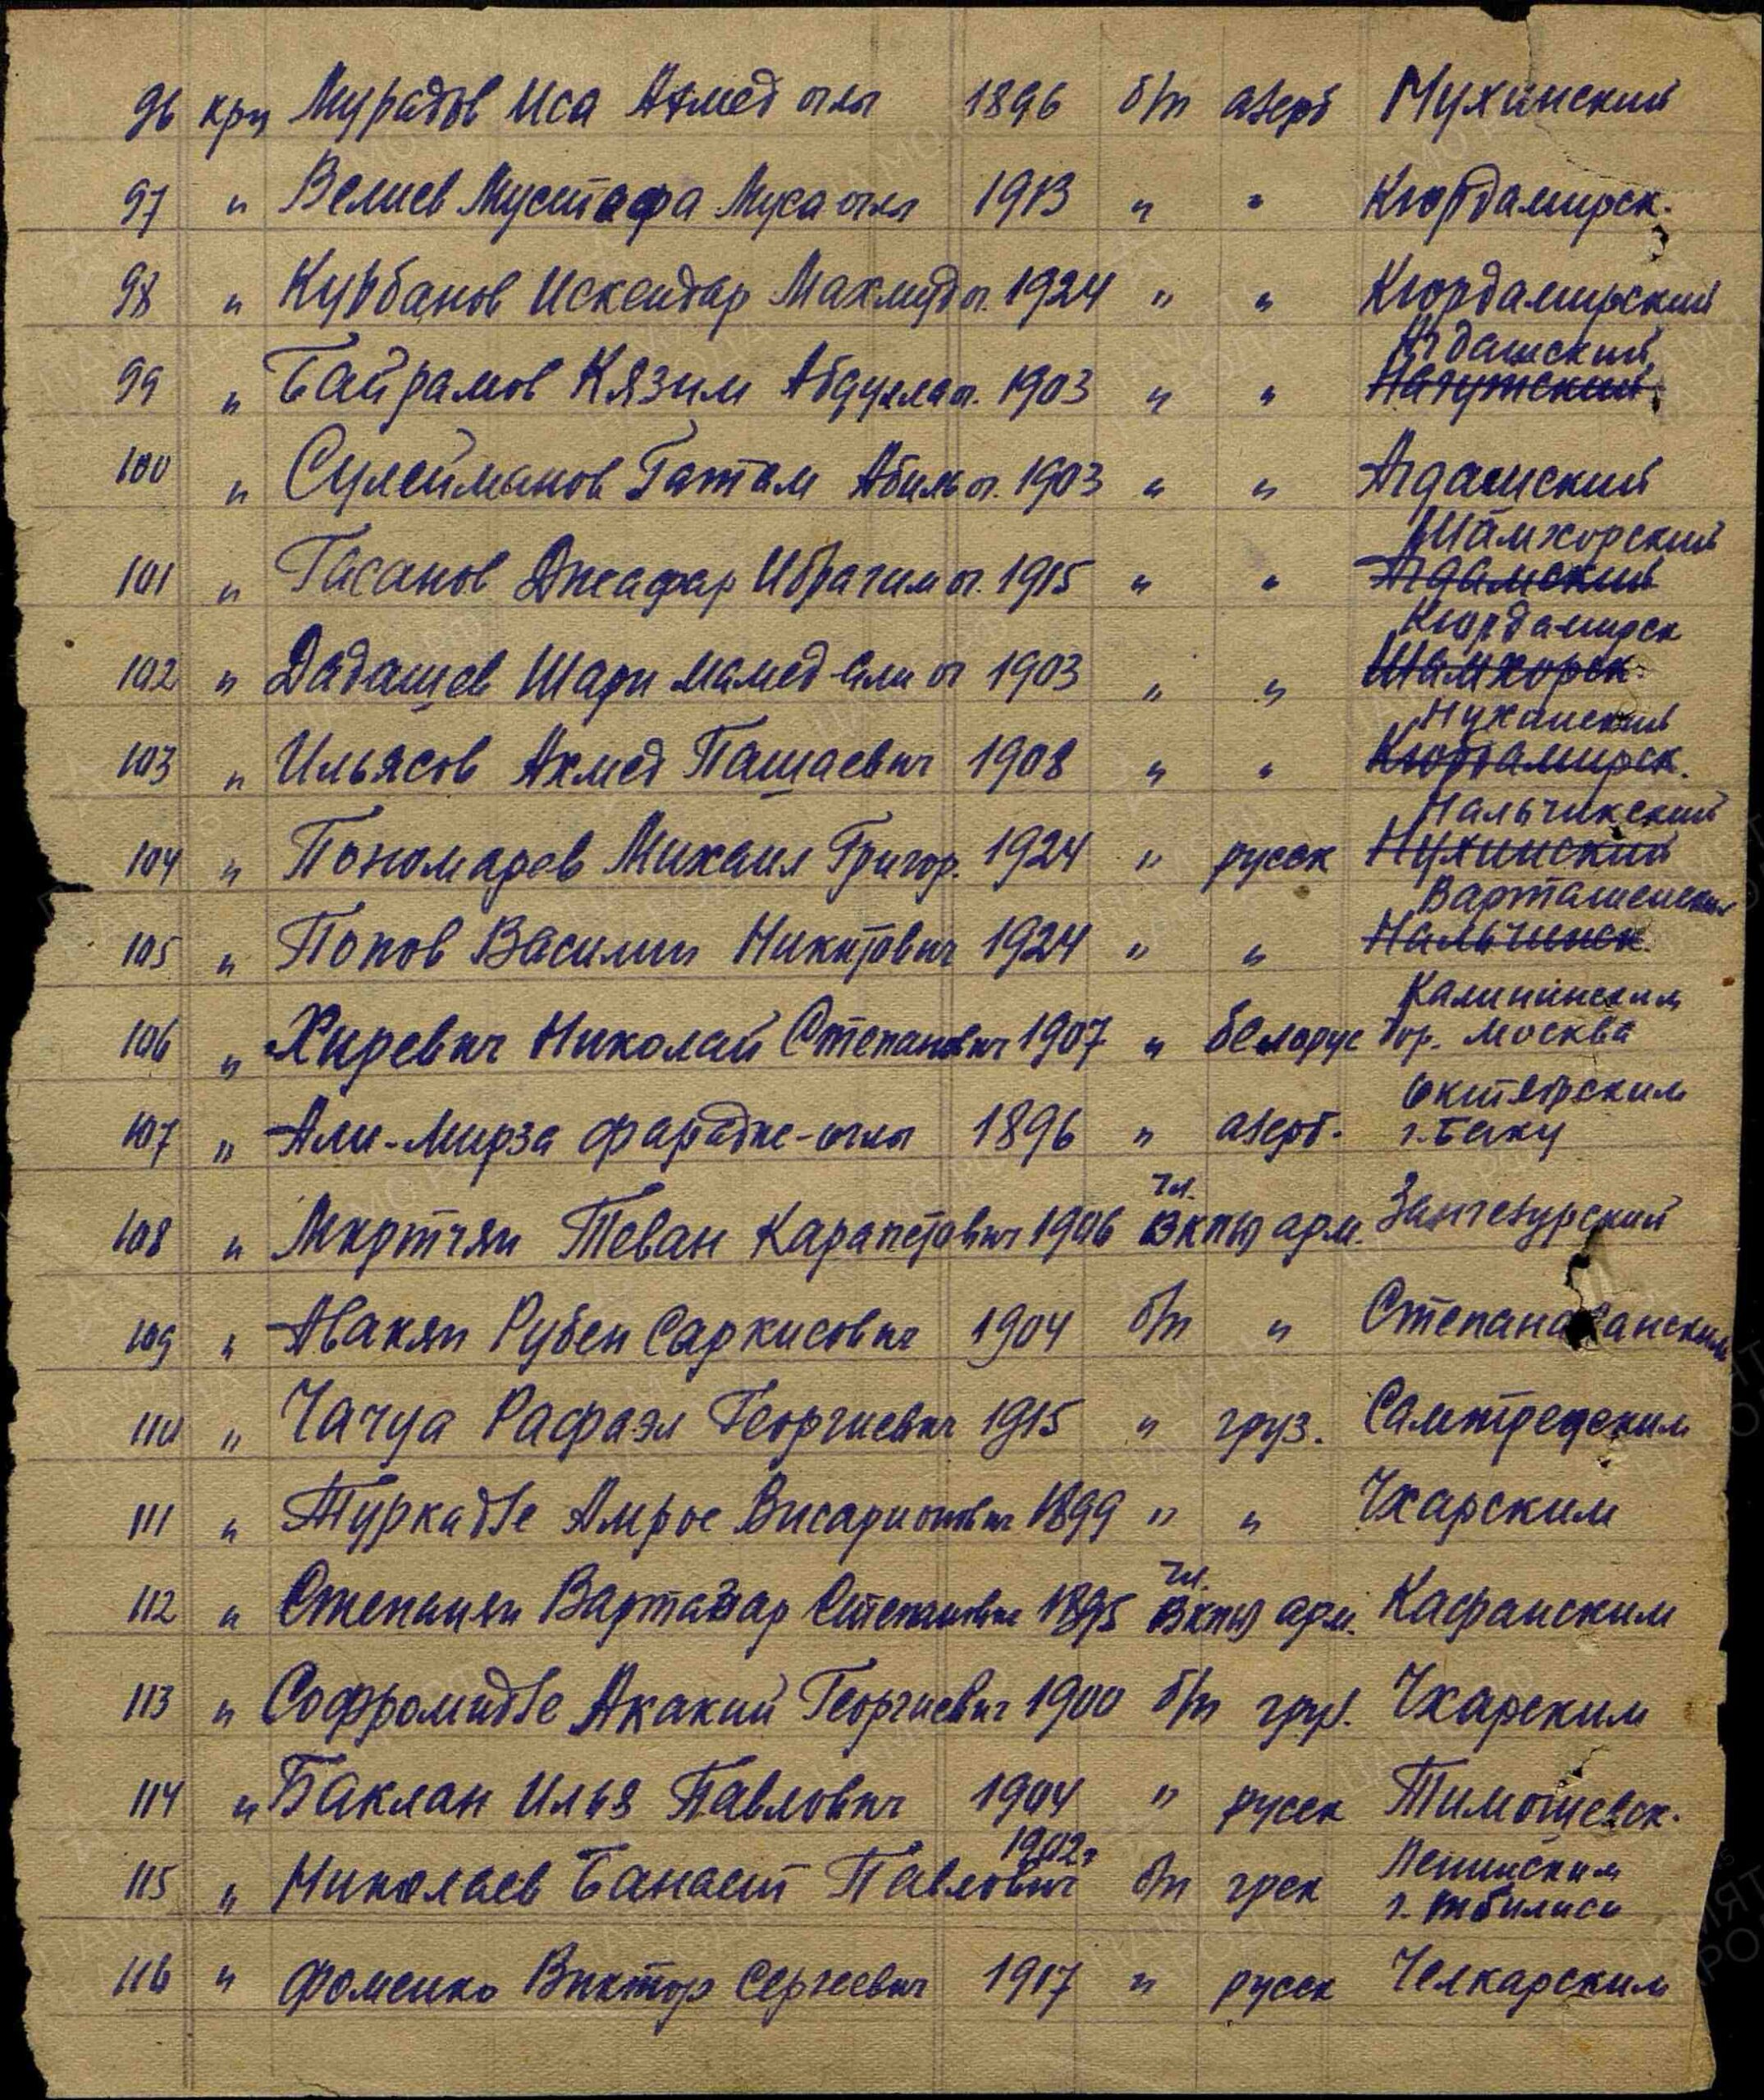 96 крп Мурадов Иса Ахмед оглы 1896 б/п азерб Нухинский
97 " Велиев Мустафа Муса оглы 1913 " " Кюрдамирск.
98 " Курбанов Искендар Махмуд о. 1924 " " Кюрдамирский
Агдашский
99 " Байрамов Кязим Абдулла о. 1903 " "
100 " Сулейманов Гатам Абиль о. 1903 " " Агдашский
Шамхорский
101 " Гасанов Джафар Ибрагим о. 1915 " " Агдамский
Кюрдамирск
102 " Дадашев Шари Мамед-али о 1903 " " Шамхорск.
Нухинский
103 " Ильясов Ахмед Пашаевич 1908 " " Кюрдамирск.
Нальчикский
104 " Пономарев Михаил Григор. 1924 " русск Нухинский
Варташенский
105 " Попов Василий Никитович 1924 " " Нальчинск.
Калининским
106 " Хиревич Николай Степанович 1907 " белорус гор. Москва
Октябрским
107 " Али-Мирза Фарадже-оглы 1896 " азерб. г. Баку
чл.
108 " Мкртчян Теван Карапетович 1906 ВКП(б) арм. Зангезурский
109 " Авакян Рубен Саркисович 1904 б/п " Степанаванским
110 " Чачуа Рафаэл Георгиевич 1915 " груз. Самтредским
111 " Туркадзе Амрос Висарионович 1899 " " Чхарским
чл.
112 " Степанян Вартазар Степанович 1895 ВКП(б) арм. Кафанским
113 " Софромидзе Акакий Георгиевич 1900 б/п груз. Чхарским
114 " Баклан Илья Павлович 1904 " русск Тимошевск.
1902г Ленинским
115 " Николаев Банает Павлович б/п грек г. Тбилиси
116 " Фоменко Виктор Сергеевич 1917 " русск Челкарским